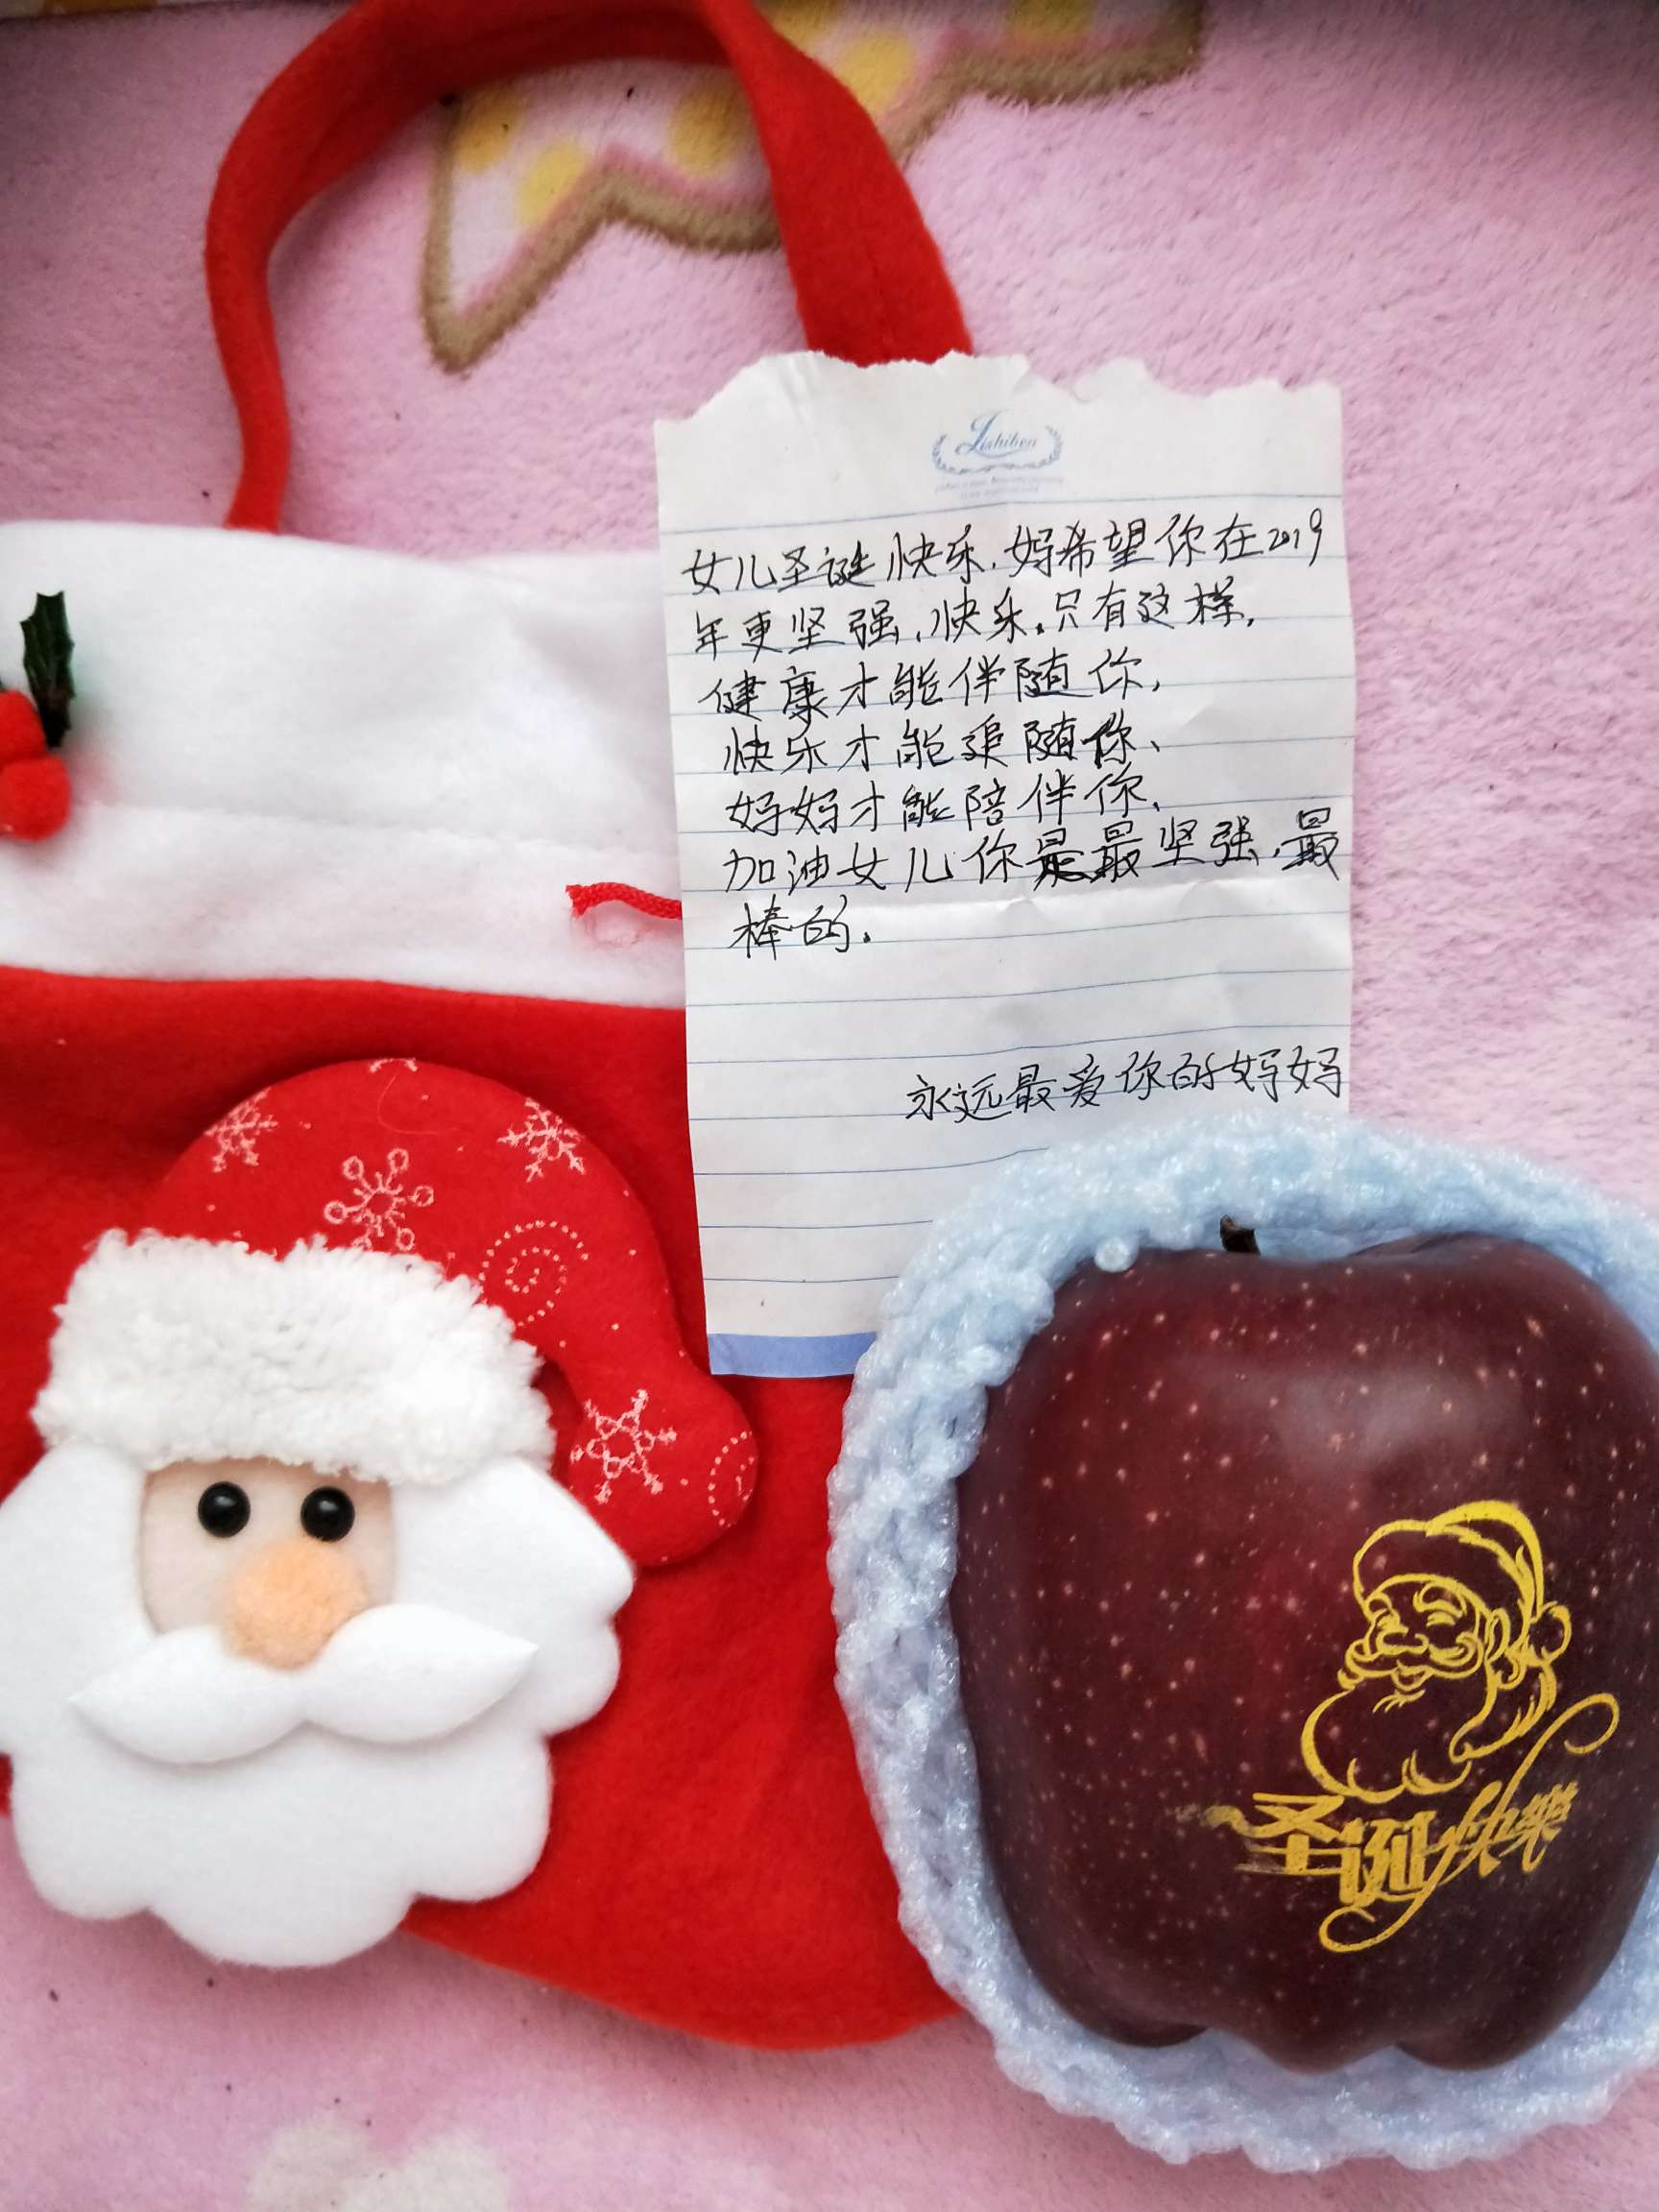 Lishiben
女儿圣诞快乐.妈希望你在2019
年更坚强,快乐.只有这样,
健康才能伴随你,
快乐才能追随你、
妈妈才能陪伴你、
加油女儿你是最坚强,最
棒的.
永远最爱你的妈妈
圣诞快樂